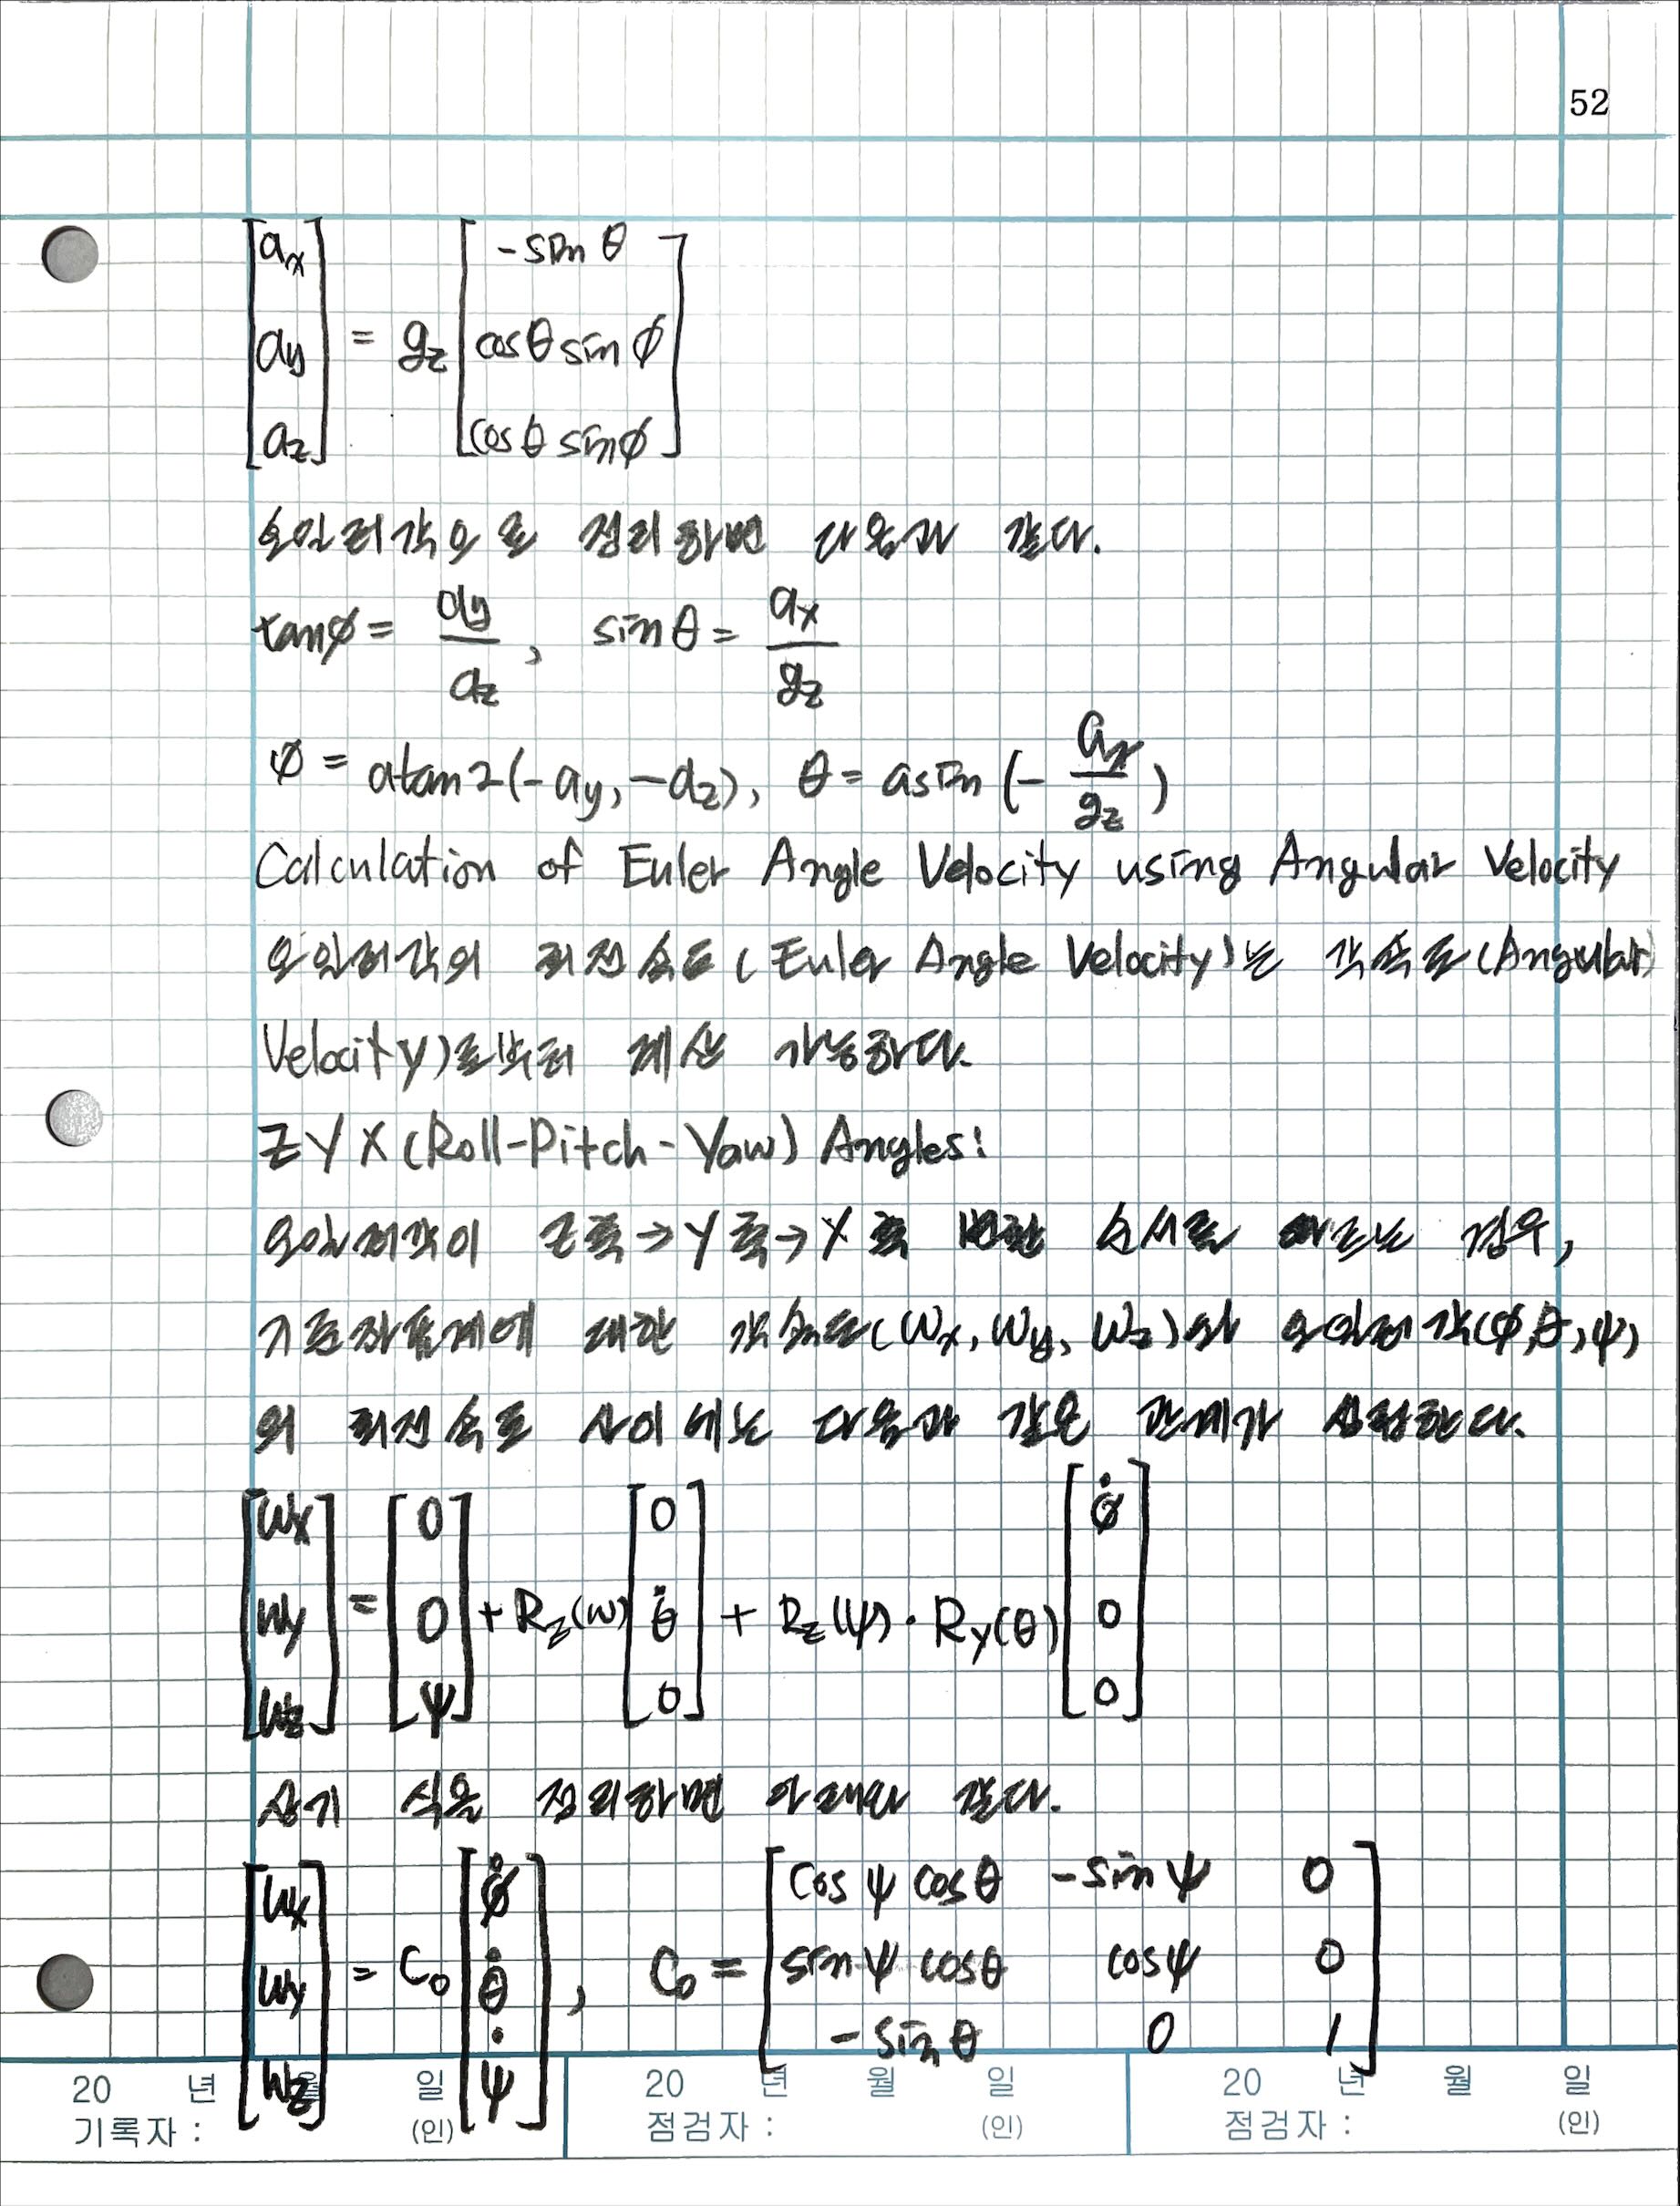 52
[ax ay az] = gz [-sin θ cosθ sin ϕ cosθ sinϕ]
오일러각으로 정리하면 다음과 같다.
tanϕ = ay/az, sinθ = ax/gz
ϕ = atan2(-ay, -az), θ = asin(-ax/gz)
Calculation of Euler Angle Velocity using Angular Velocity
오일러각의 회전속도(Euler Angle Velocity)는 각속도(Angular)
Velocity)로부터 계산 가능하다.
ZYX(Roll-Pitch-Yaw) Angles:
오일러각이 Z축→Y축→X축 변환 순서를 따르는 경우,
기준좌표계에 대한 각속도(Wx, Wy, Wz)와 오일러각(ϕ,θ,ψ)
의 회전속도 사이에는 다음과 같은 관계가 성립한다.
[Wx Wy Wz] = [0 0 ψ] + Rz(w)[0 θ̇ 0] + Rz(ψ)·Ry(θ)[ϕ̇ 0 0]
상기 식을 정리하면 아래와 같다.
[Wx Wy Wz] = C0 [ϕ̇ θ̇ ψ̇], C0 = [cos ψ cosθ -sin ψ 0 sin ψ cosθ cosψ 0 -sin θ 0 1]
20 년 월 일 20 년 월 일 20 년 월 일
기록자 : (인) 점검자 : (인) 점검자 : (인)